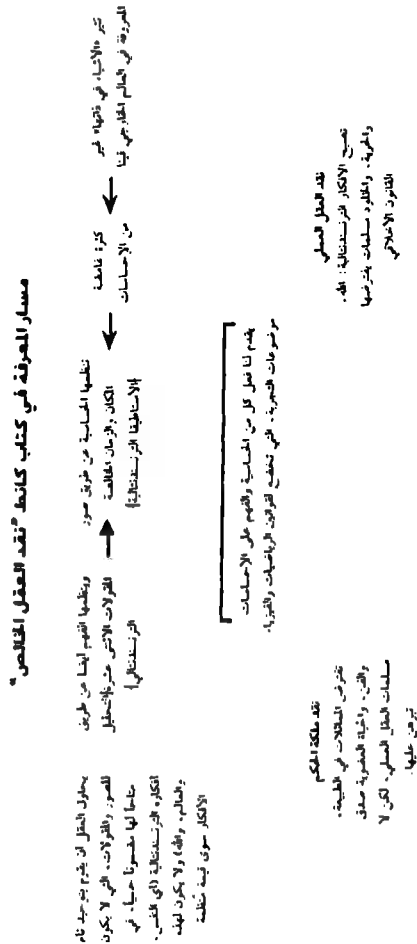 مسار المعرفة في كتاب كانط "نقد العقل الخالص"
تثير «الأشياء في ذاتها» غير
المعروفة في العالم الخارجي فينا
كثرة غامضة
من الإحساسات
تنظمها الحساسية عن طريق صور
المكان والزمان الخالصة
[الاستاطيقا الترنسندنتالية]
وينظمها الفهم أيضا عن طريق
المقولات الاثنتي عشرة [التحليل
الترنسندنتالي]
يحاول العقل أن يقوم بتوحيد تام
للصور والمقولات، التي لا يكون
متاحا لها مضمونا حسيا، في
أفكاره الترنسندنتالية (أي النفس،
والعالم، والله) ولا يكون لهذه
الأفكار سوى قيمة منظمة
يقدم لنا فعل كل من الحساسية والفهم على الإحساسات
موضوعات التجربة، التي تخضع لقوانين الرياضيات والفيزياء.
نقد العقل العملي
تصبح الأفكار الترنسندنتالية: الله،
والحرية، والخلود مسلمات يفترضها
القانون الأخلاقي
نقد ملكة الحكم
تفترض المماثلات في الطبيعة،
والفن، والحياة العضوية صدق
مسلمات العقل العملي، لكن لا
تبرهن عليها.